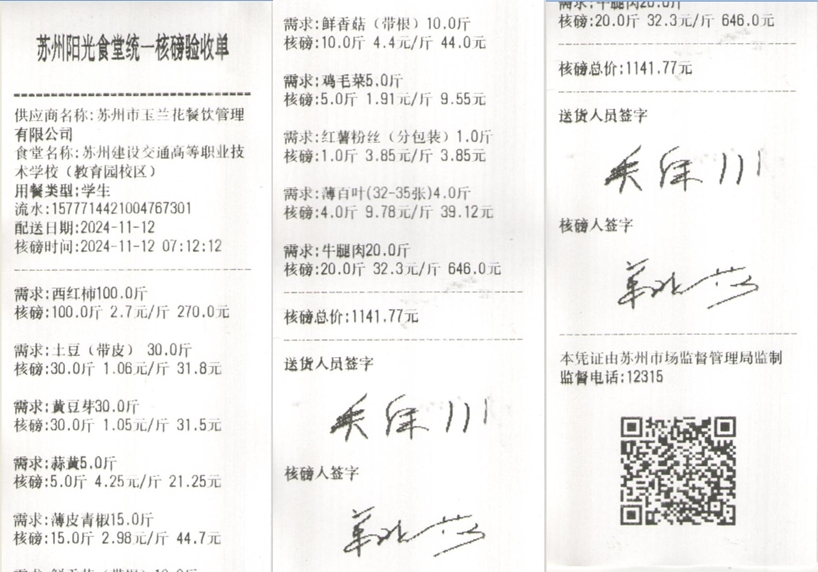 苏州阳光食堂统一核磅验收单
供应商名称:苏州市玉兰花餐饮管理
有限公司
食堂名称:苏州建设交通高等职业技
术学校（教育园校区）
用餐类型:学生
流水:1577714421004767301
配送日期:2024-11-12
核磅时间:2024-11-12 07:12:12
需求:西红柿100.0斤
核磅:100.0斤 2.7元/斤 270.0元
需求:土豆（带皮） 30.0斤
核磅:30.0斤 1.06元/斤 31.8元
需求:黄豆芽30.0斤
核磅:30.0斤 1.05元/斤 31.5元
需求:蒜黄5.0斤
核磅:5.0斤 4.25元/斤 21.25元
需求:薄皮青椒15.0斤
核磅:15.0斤 2.98元/斤 44.7元
需求:鲜香菇（带根）10.0斤
需求:鲜香菇（带根）10.0斤
核磅:10.0斤 4.4元/斤 44.0元
需求:鸡毛菜5.0斤
核磅:5.0斤 1.91元/斤 9.55元
需求:红薯粉丝（分包装）1.0斤
核磅:1.0斤 3.85元/斤 3.85元
需求:薄百叶(32-35张)4.0斤
核磅:4.0斤 9.78元/斤 39.12元
需求:牛腿肉20.0斤
核磅:20.0斤 32.3元/斤 646.0元
核磅总价:1141.77元
送货人员签字
核磅人签字
需求:牛腿肉20.0斤
核磅:20.0斤 32.3元/斤 646.0元
核磅总价:1141.77元
送货人员签字
核磅人签字
本凭证由苏州市场监督管理局监制
监督电话:12315